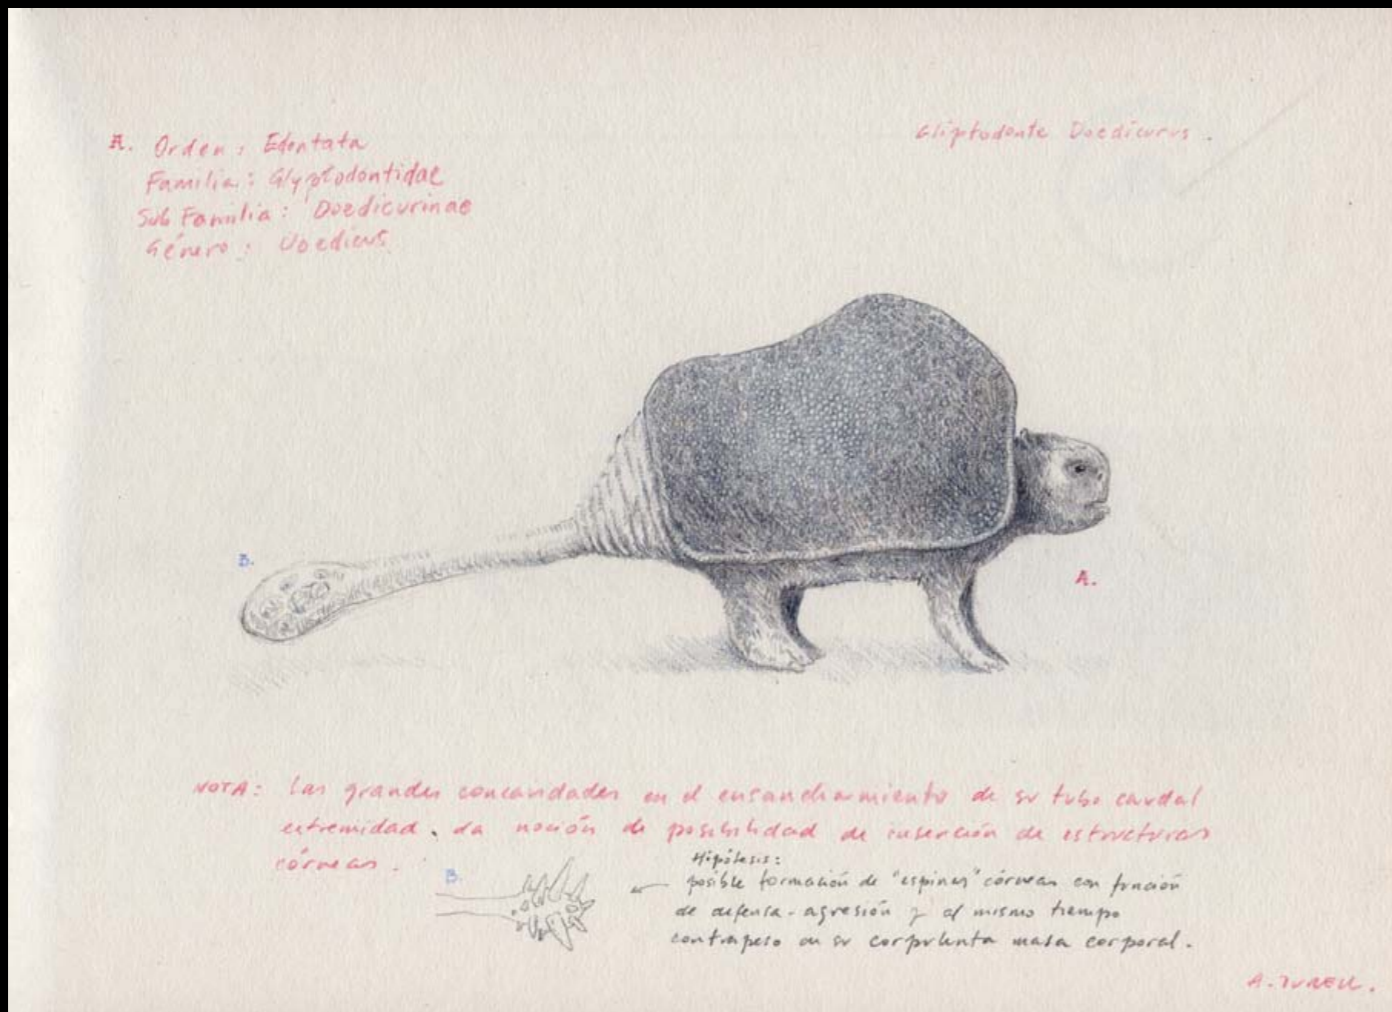 A. Orden: Edentata
Familia: Glyptodontidae
Sub Familia: Doedicurinae
Género:
Gliptodonte Doedicurus.
B.
A.
NOTA: Las grandes concavidades en el ensanchamiento de su tubo caudal
extremidad. da noción de posibilidad de inserción de estructuras
córneas.
B.
Hipótesis:
posible formación de "espinas" córneas con función
de defensa - agresión y al mismo tiempo
contrapeso en su corpulenta masa corporal.
A.